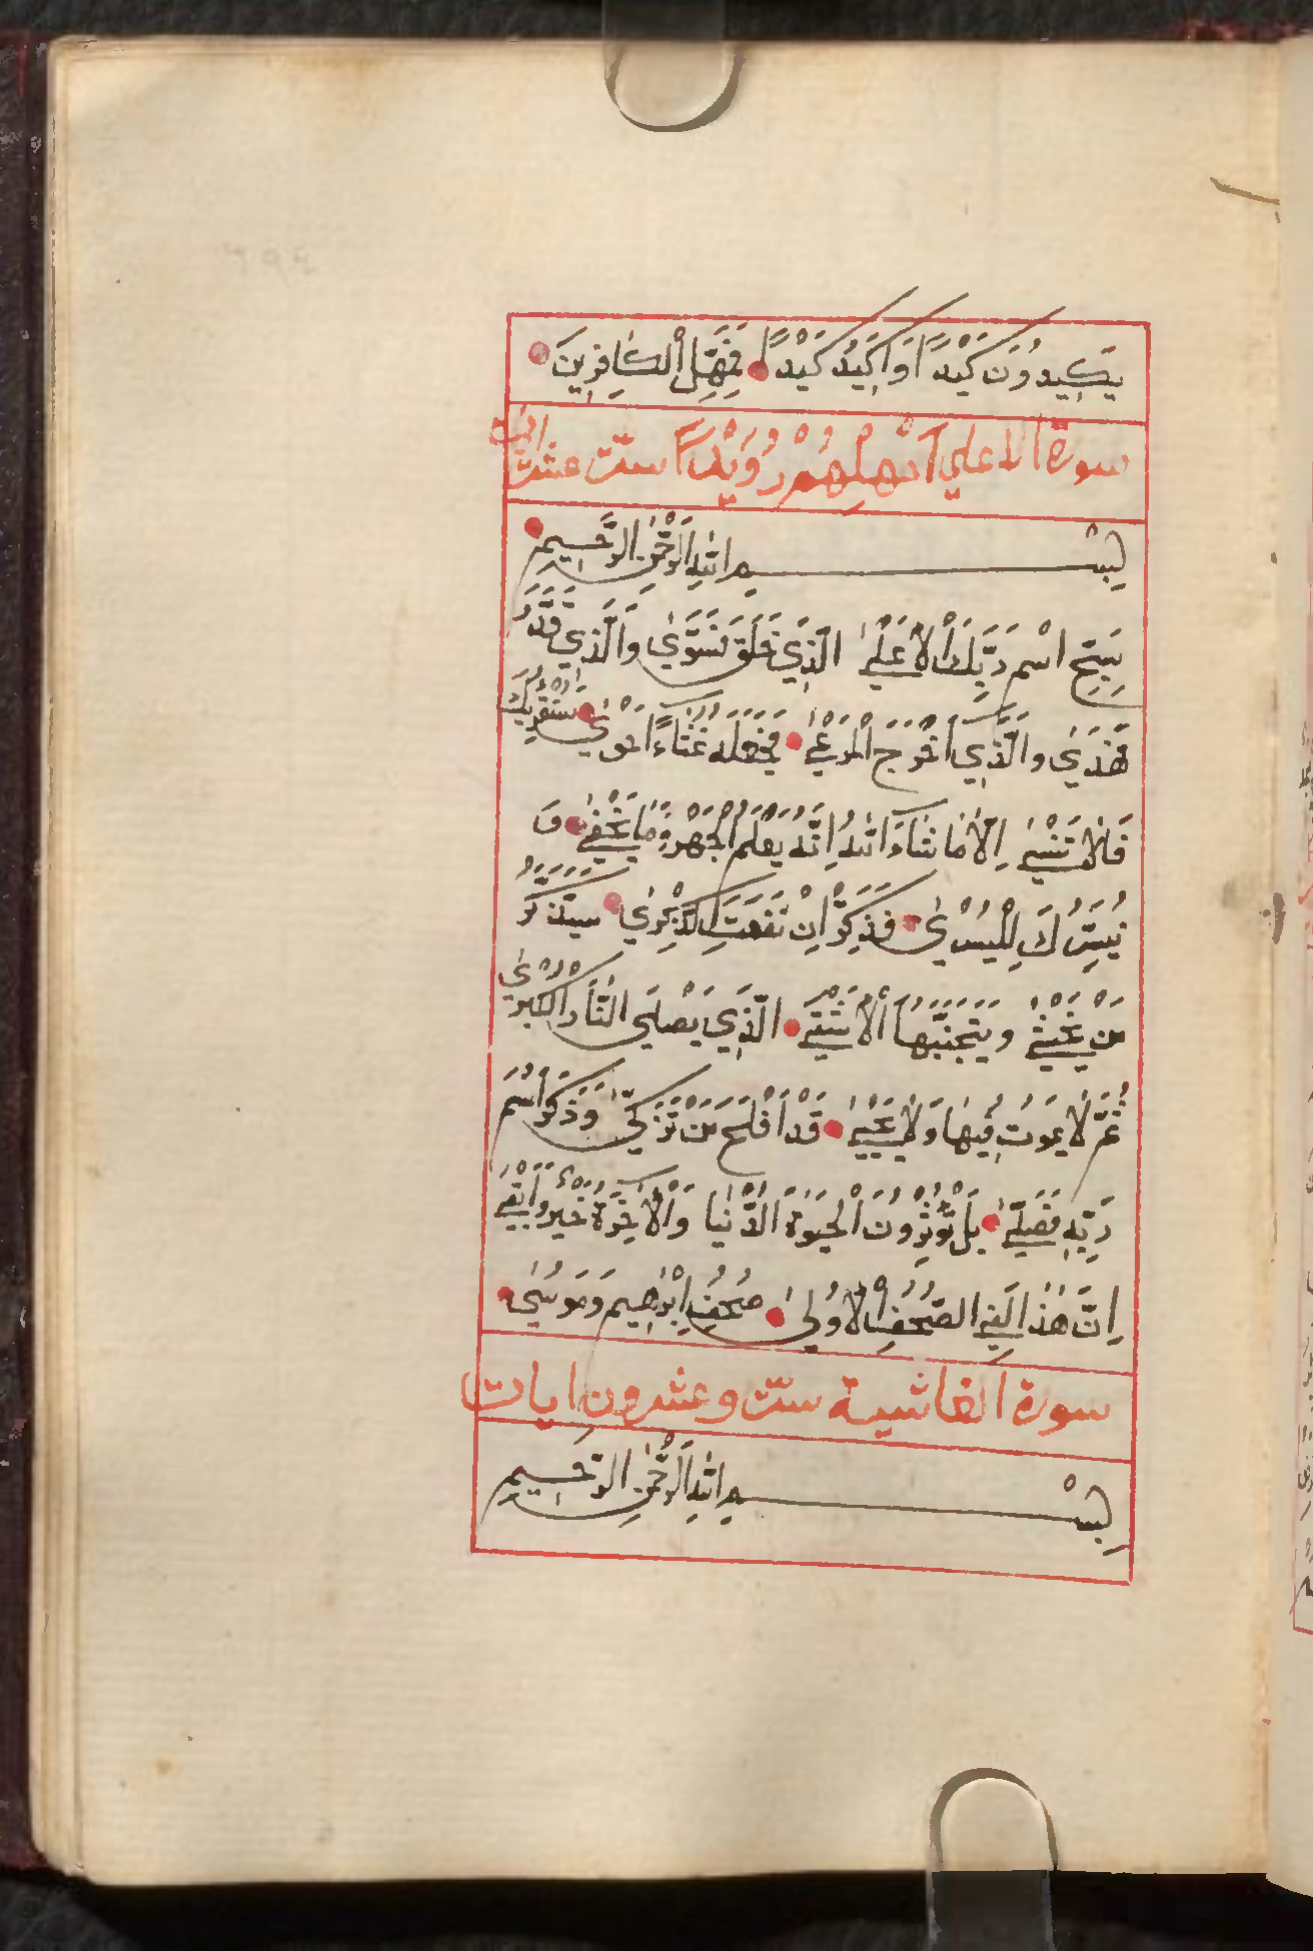 يَكِيدُونَ كَيْدًا وَاَكِيدُ كَيْدًا فَمَهِّلِ الْكَافِرِينَ
سورة الاعلي اَمْهِلْهُمْ رُوَيْدًا ستّ عشرت ايات
بِسْمِ اللهِ الرَّحْمٰنِ الرَّحِيمِ
سَبِّحِ اسْمَ رَبِّكَ الْاَعْلَىٰ الَّذِي خَلَقَ فَسَوَّىٰ وَالَّذِي قَدَّرَ
فَهَدَىٰ وَالَّذِي اَخْرَجَ الْمَرْعَىٰ فَجَعَلَهُ غُثَاءً اَحْوَىٰ سَنُقْرِئُكَ
فَلَا تَنْسَىٰ اِلَّا مَا شَاءَ اللهُ اِنَّهُ يَعْلَمُ الْجَهْرَ وَمَا يَخْفَىٰ وَ
نُيَسِّرُكَ لِلْيُسْرَىٰ فَذَكِّرْ اِنْ نَفَعَتِ الذِّكْرَىٰ سَيَذَّكَّرُ
مَنْ يَخْشَىٰ وَيَتَجَنَّبُهَا الْاَشْقَىٰ الَّذِي يَصْلَى النَّارَ الْكُبْرَىٰ
ثُمَّ لَا يَمُوتُ فِيهَا وَلَا يَحْيَىٰ قَدْ اَفْلَحَ مَنْ تَزَكَّىٰ وَذَكَرَ اسْمَ
رَبِّهِ فَصَلَّىٰ بَلْ تُؤْثِرُونَ الْحَيٰوةَ الدُّنْيَا وَالْاٰخِرَةُ خَيْرٌ وَاَبْقَىٰ
اِنَّ هٰذَا لَفِي الصُّحُفِ الْاُولَىٰ صُحُفِ اِبْرٰهِيمَ وَمُوسَىٰ
سورة الغاشية ستّ وعشرون ايات
بِسْمِ اللهِ الرَّحْمٰنِ الرَّحِيمِ